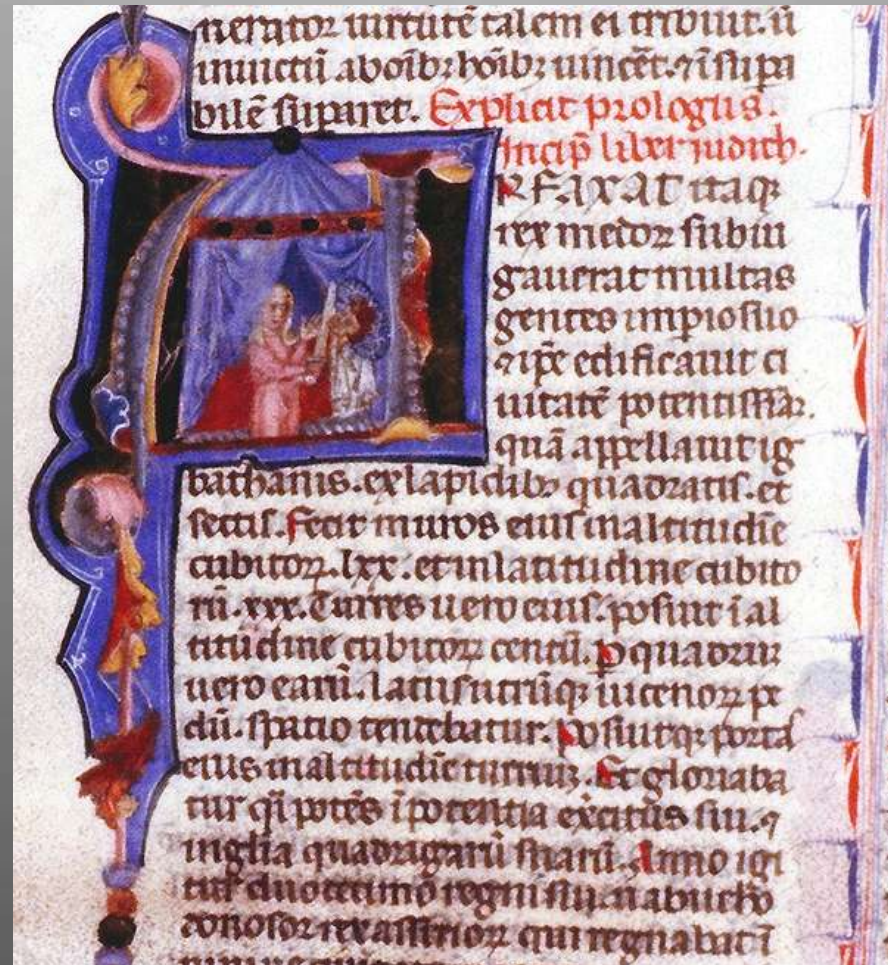 nerator uirtutē talem ei tribuit. ū
inuictū aboībꝫ hoībꝫ uinceret. ⁊ īsupa
bilē suparet. Explicit prologus.
Incip̄ liber iudith.
RFAXAT itaqꝫ
rex medoꝝ subiu
gauerat multas
gentes impio suo
⁊ ip̄e edificauit ci
uitatē potentissīaꝫ.
quā appellauit ig
bathanis. ex lapidibꝫ quadratis. et
sectis. Fecit muros eius inaltitudīe
cubitoꝝ. lxx. et inlatitudine cubito
rū. xxx. Turres uero eius. posuit ī al
titudine cubitoꝝ centū. ꝑ quadrū
uero earū. latus utrūqꝫ uicenoꝝ pe
dū. spatio tendebatur. Posuitqꝫ portas
eius inaltitudīe turriuꝫ. Et gloriaba
tur q̄i potēs ī potentia exc̄itus sui. ⁊
inglīa quadrigarū suarū. Anno igi
tur duodecimo regni sui. nabucho
donosor rex assirioꝝ qui regnabat ī